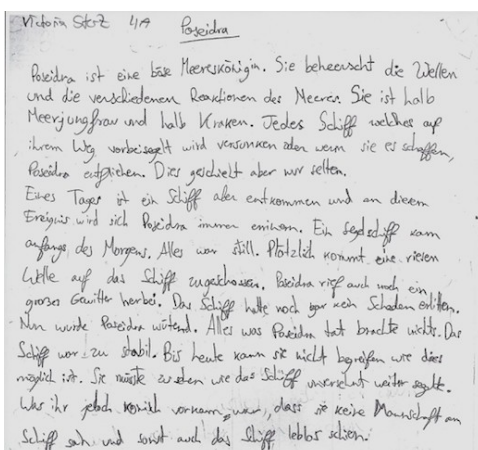 Victoria Sterz 4A Poseidra
Poseidra ist eine böse Meereskönigin. Sie beherrscht die Wellen
und die verschiedenen Reaktionen des Meeres. Sie ist halb
Meerjungfrau und halb Kraken. Jedes Schiff welches auf
ihrem Weg vorbeisegelt wird versunken oder wenn sie es schaffen,
Poseidra entfliehen. Dies geschieht aber nur selten.
Eines Tages ist ein Schiff aber entkommen und an diesem
Ereignis wird sich Poseidra immer erinnern. Ein Segelschiff kam
anfangs des Morgens. Alles war still. Plötzlich kommt eine riesen
Welle auf das Schiff zugeschossen. Poseidra rief auch noch ein
großes Gewitter herbei. Das Schiff hatte noch gar kein Schaden erlitten.
Nun wurde Poseidra wütend. Alles was Poseidra tat brachte nichts. Das
Schiff war zu stabil. Bis heute kann sie nicht begreifen wie dies
möglich ist. Sie musste zusehen wie das Schiff unversehrt weiter segelte.
Was ihr jedoch komisch vorkam, war, dass sie keine Mannschaft am
Schiff sah und sonst auch das Schiff leblos schien.